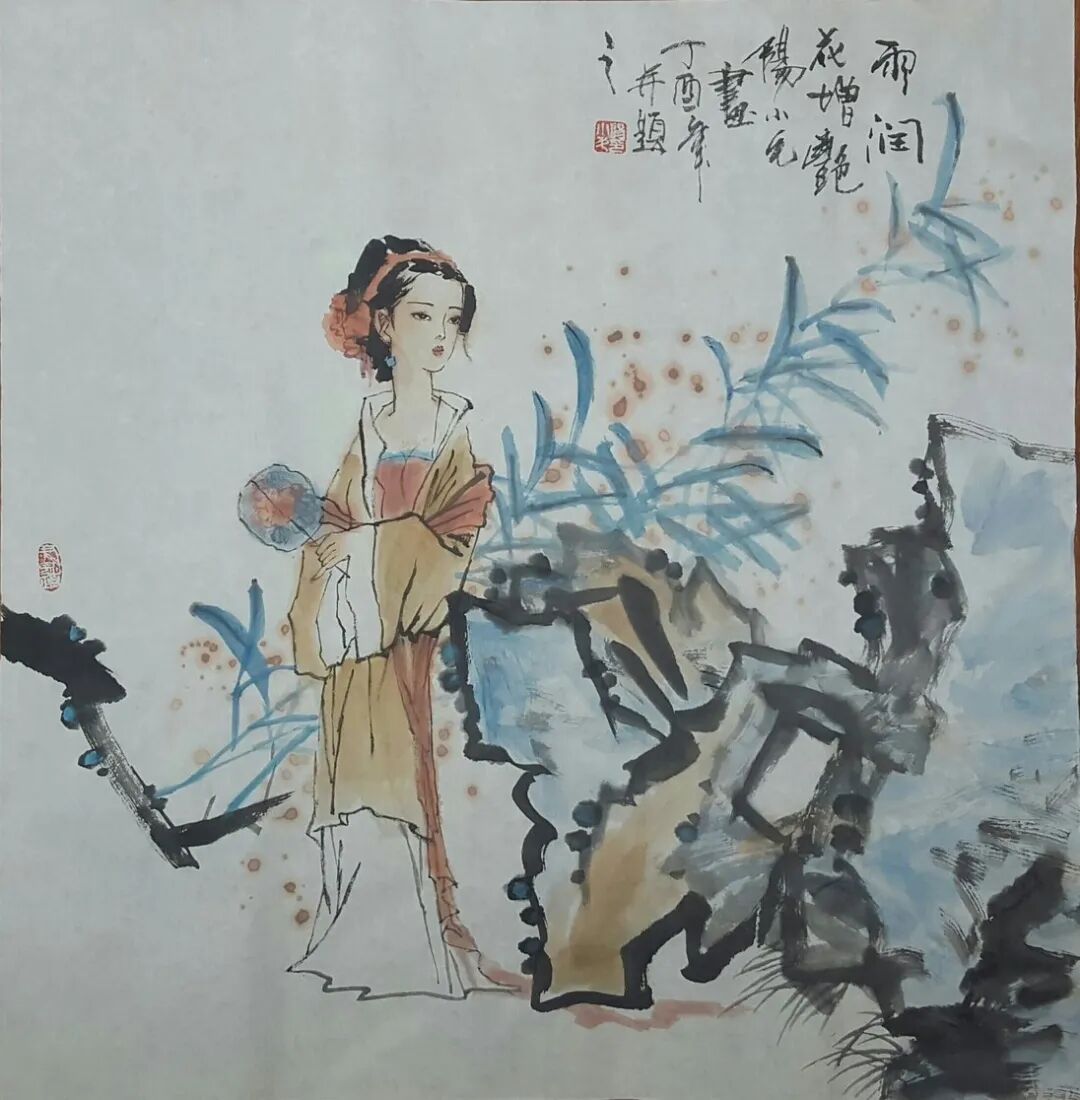 雨润
花增艳
陽小毛
畫
丁酉年
并題
之